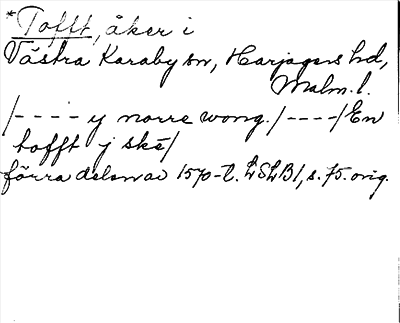 *Tofft, åker i
Västra Karaby sn, Harjagers hd,
Malm.l.
/---- y norre wong./----/En
tofft j ske/
förra delen av 1570-t. LSLB1, s. 75. orig.